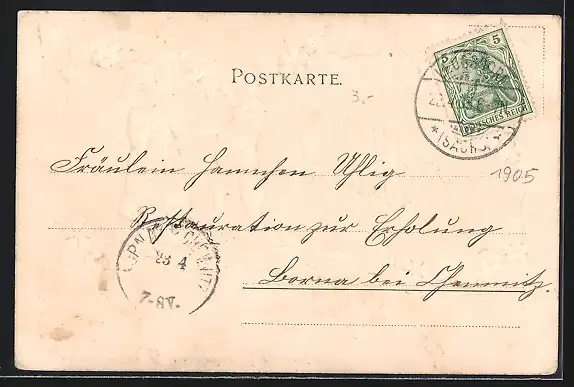 POSTKARTE.
3.-
5 5
DEUTSCHES REICH
(SACHS.)
1905
Fräulein Hannchen Uhlig
Restauration zur Erholung
Borna bei Chemnitz.
23 4
7-8V.